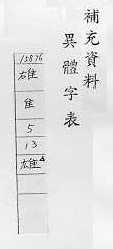 補充資料
異體字表
13876
雄
隹
5
13